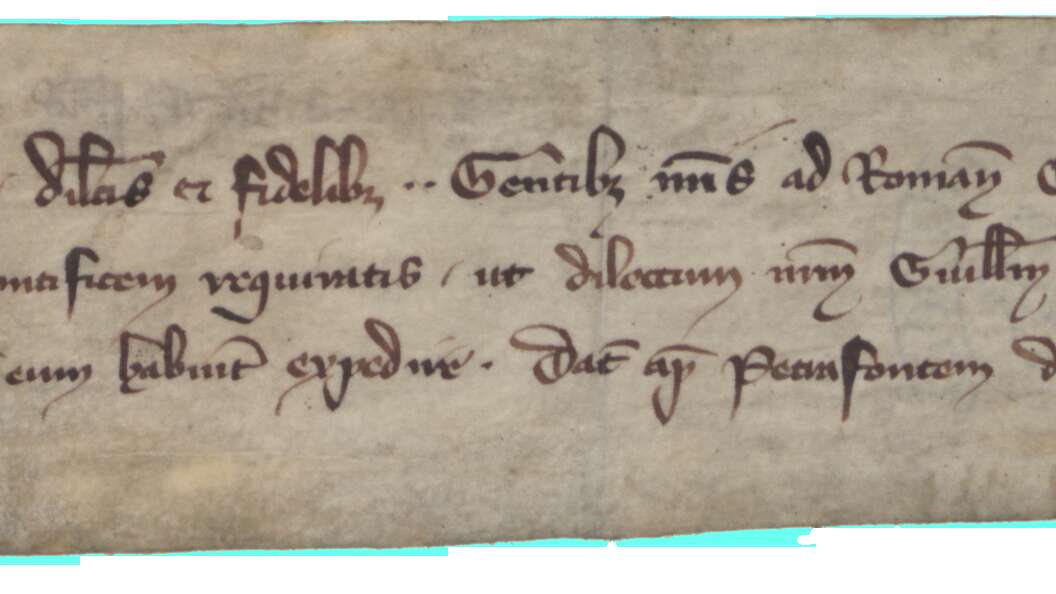 dilc̄is et fidelibꝫ ·· Gent̄ibꝫ nr̄is ad Romañ
ntificem requiratis / ut dilectum nr̄m Guill̄m
eum hab̄uint̄ expedire · Dat̄ ap̄ Petrafontem